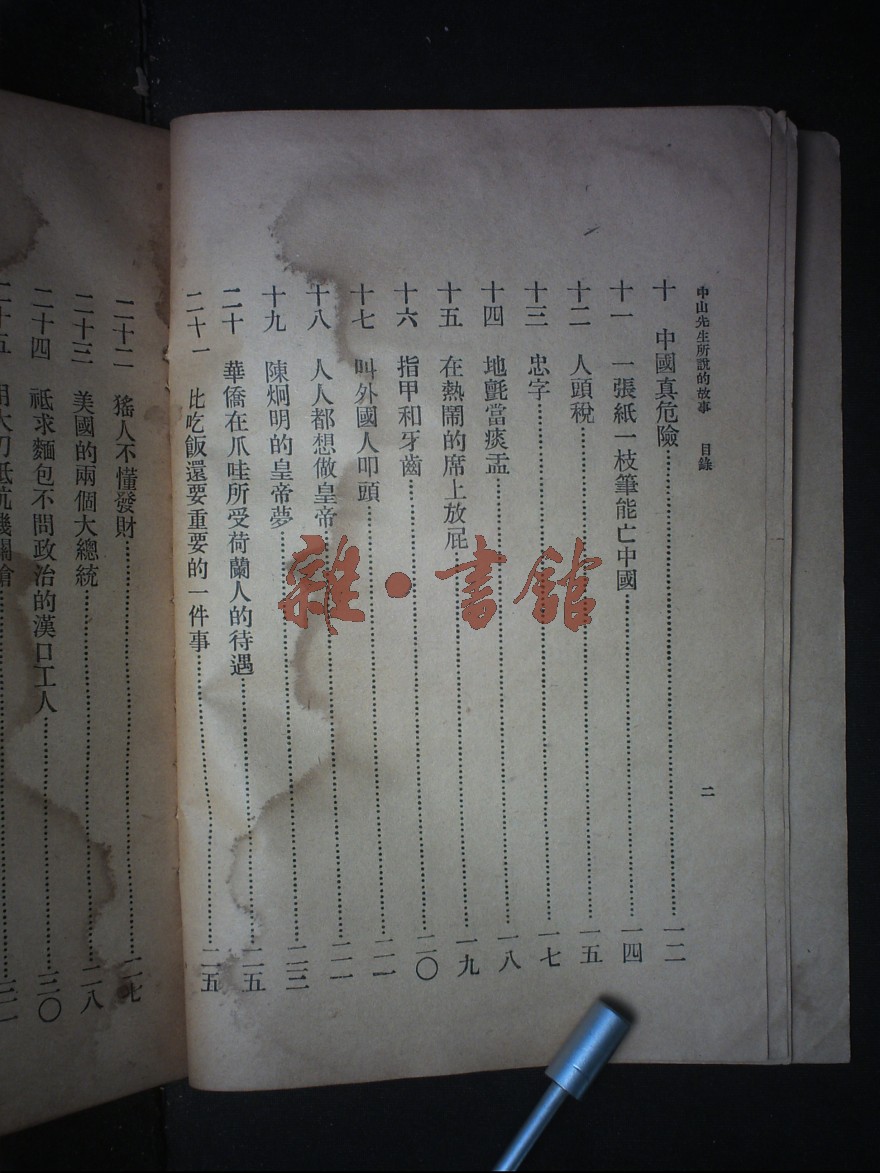 中山先生所說的故事 目錄 二
十 中國真危險……一二
十一 一張紙一枝筆能亡中國……一四
十二 人頭稅……一五
十三 忠字……一七
十四 地氈當痰盂……一八
十五 在熱鬧的席上放屁……一九
十六 指甲和牙齒……二〇
十七 叫外國人叩頭……二一
十八 人人都想做皇帝……二二
十九 陳炯明的皇帝夢……二三
二十 華僑在爪哇所受荷蘭人的待遇……二五
二十一 比吃飯還要重要的一件事……二五
二十二 猺人不懂發財……二七
二十三 美國的兩個大總統……二八
二十四 祗求麵包不問政治的漢口工人……三〇
二十五 用大刀抵抗機關槍……
雜·書館